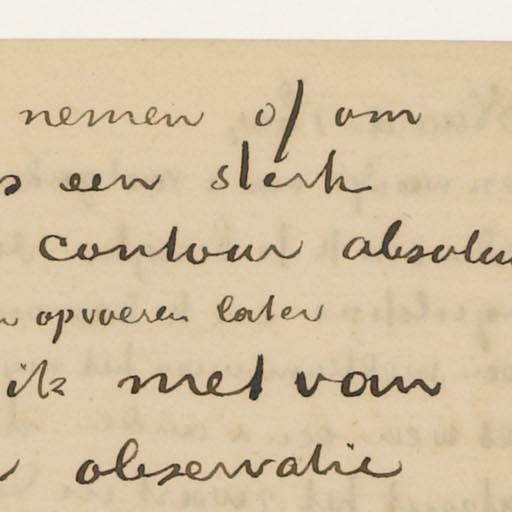 nemen of om
een sterk
contour absolu
opvoeren later
ik met van
observatie